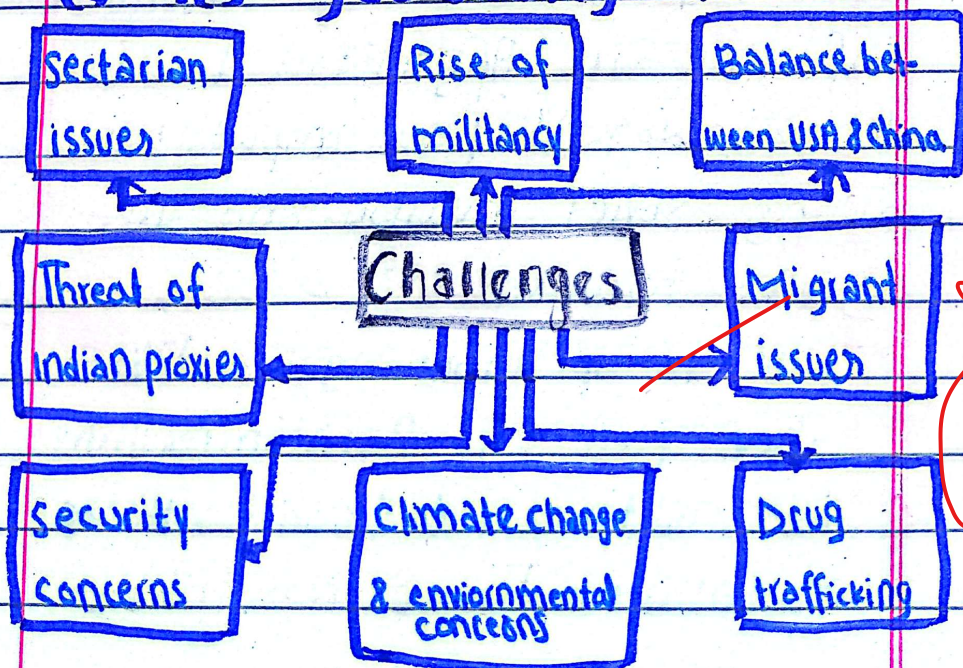 Sectarian
issues
Rise of
militancy
Balance bet-
ween USA & China
Threat of
Indian proxies
Challenges
Migrant
issues
Security
concerns
Climate change
& enviornmental
concerns
Drug
trafficking